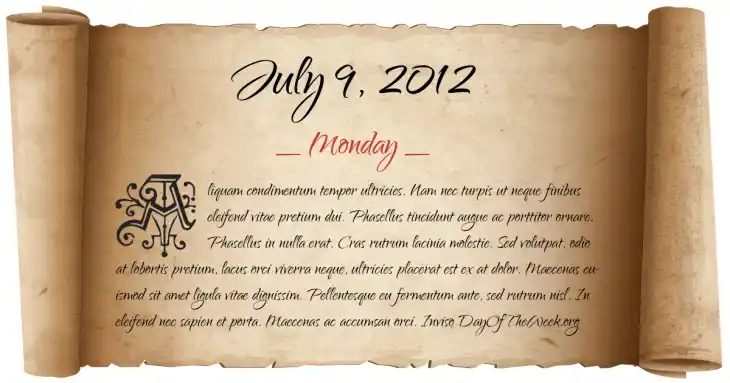 July 9, 2012
_ Monday _
Aliquam condimentum tempor ultricies. Nam nec turpis ut neque finibus
eleifend vitae pretium dui. Phasellus tincidunt augue ac porttitor ornare.
Phasellus in nulla erat. Cras rutrum lacinia molestie. Sed volutpat, odio
at lobortis pretium, lacus orci viverra neque, ultricies placerat est ex at dolor. Maecenas eu-
ismod sit amet ligula vitae dignissim. Pellentesque eu fermentum ante, sed rutrum nisl. In
eleifend nec sapien et porta. Maecenas ac accumsan orci. Inviso DayOfTheWeek.org